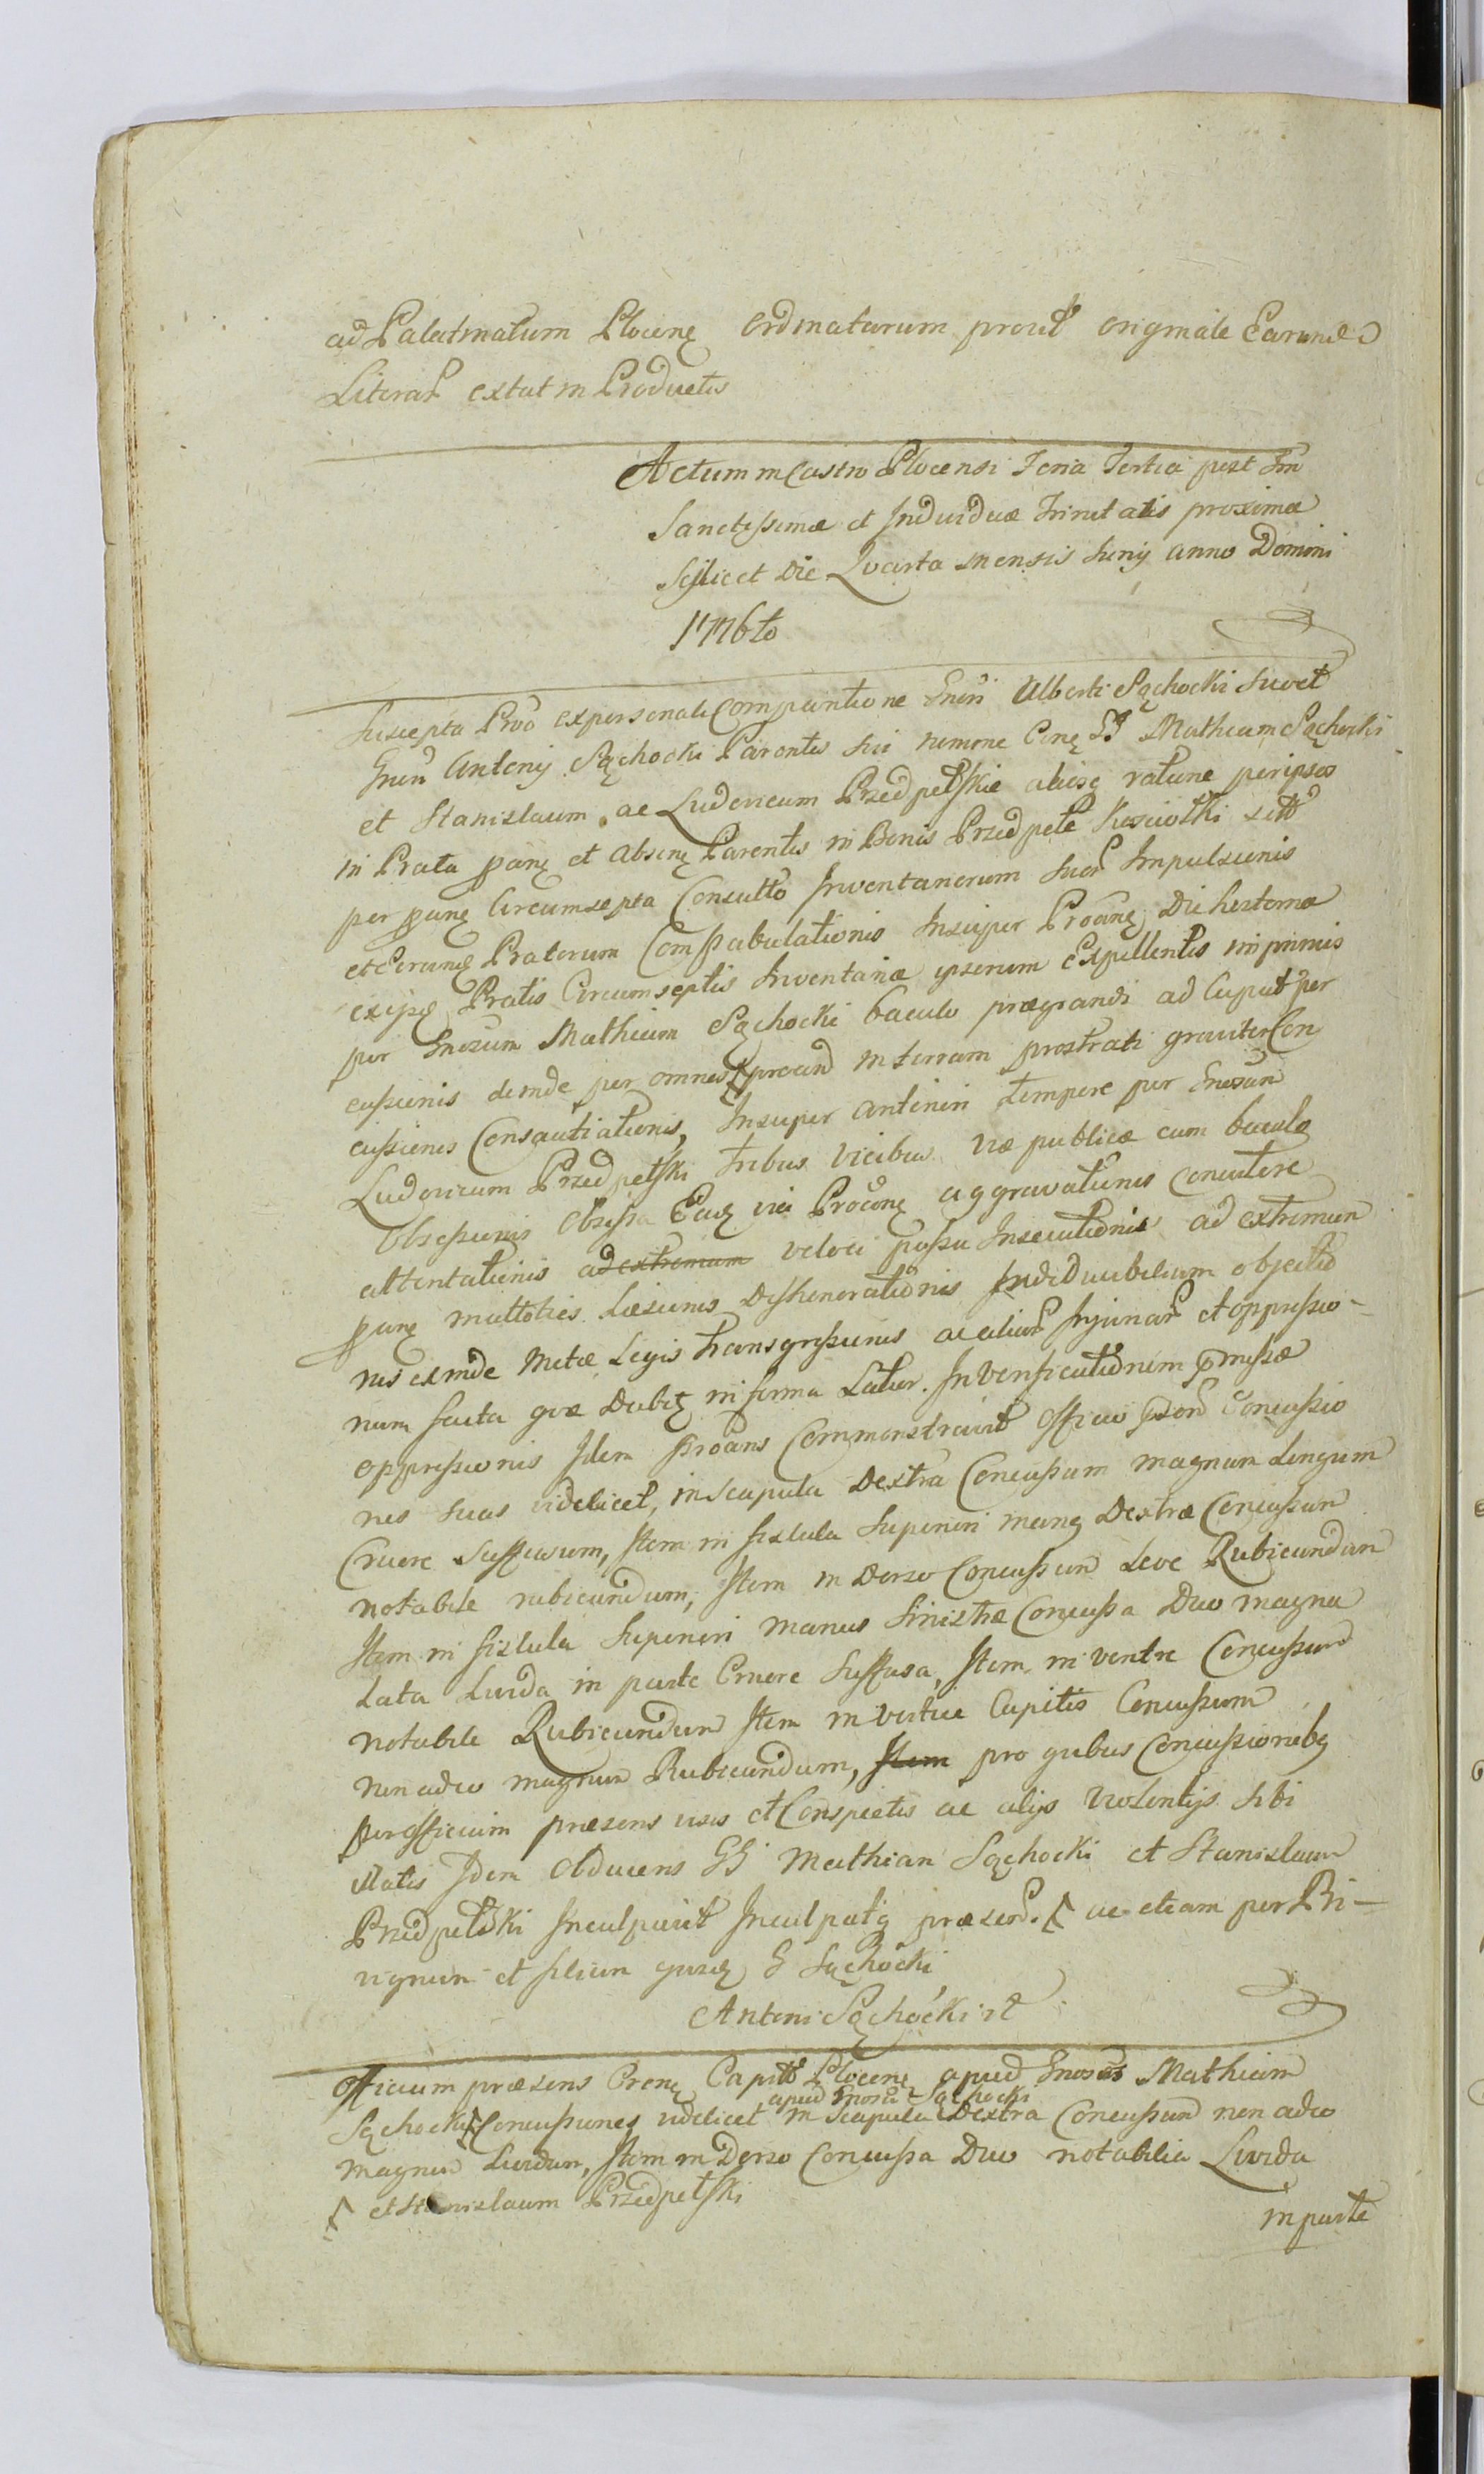 ad Palatinatum Plocens Ordinatarum prout originale Earund
Literar extat in Productis
Actum in Castro Plocensi Feria Tertia post Fm
Sanctissimæ et Individuæ Trinitatis proxima
Scilicet Die Quarta mensis Junij anno Domini
1776to
Suscepta Proo ex personali Comparitione Gnri Alberti Sęchocki Succt
Gnri Antonij Sęchocki Parentis sui nomine Cone GG Mathiam Sęchocki
et Stanislaum ac Ludovicum Przedpełskie aliosq ratione per ipsos
in Prata ppane et absens Parentis in Bonis Przedpełe Kosciołki
per ppane Circumsepta Consulto Inventariorum suor Impulsionis
et Eorund Pratorum Compabulationis Insuper Proane Die hesterna
ex ipsis Pratis Circumseptis Inventaria ipsorum Expellentis imprimis
per Gnosum Mathiam Sęchocki baculo prægrandi ad Caput per
cussionis deinde per omnes procund in terram prostrati graviter Con
cussionis Consautiationis, Insuper anteriori tempore per Gnosum
Ludovicum Przedpełski tribus vicibus viæ publicæ cum baculo
Obsessionis Obsessa Eadq via Proane aggravationis concutere
attentationis ad extremum veloci passu Insecutionis ad extremum
ppane multoties Læsionis Dishonorationis Individubilium objectio
nis exinde Metæ Legis transgressionis ac aliar Injuriar et oppressio-
num facta quæ Dabitq in forma Latior. In Verificationem præmissæ
oppressionis Idem Proans Commonstravit Officio Concussio
nes suas videlicet, in scapula Dextra Concussum magnum Longum
Cruore suffusum, Item in fistula Superiori manus Dextræ Concussum
notabile rubicundum, Item in Dorso Concussum Leve Rubicundum
Item in fistula Superiori manus Sinistræ Concussa Duo magna
Lata Livida in parte Cruore Suffusa, Item in ventre Concussum
notabile Rubicundum Item in Vertice Capitis Concussum
non adeo magnum Rubicundum, Item pro quibus Concussionibq
per Officium præsens visis et Conspectis ac alijs Violentijs Sibi
illatis Idem Obducens GG Mathiam Sęchocki et Stanislaum
Przedpełski Inculpavit Inculpatq præsend. ac etiam per Pri-
vignum et filium G Sęchocki
Antoni Sęchocki
Officium præsens Crene Capitt Plocene apud Gnosos Mathiam
apud Gnosu Sęchocki
Sęchocki Concussiones videlicet in Scapula Dextra Concussum non adeo
magnum Lividum, Item in Dorso Concussa Duo notabilia Livida
et Stanislaum Przedpełski
in parte